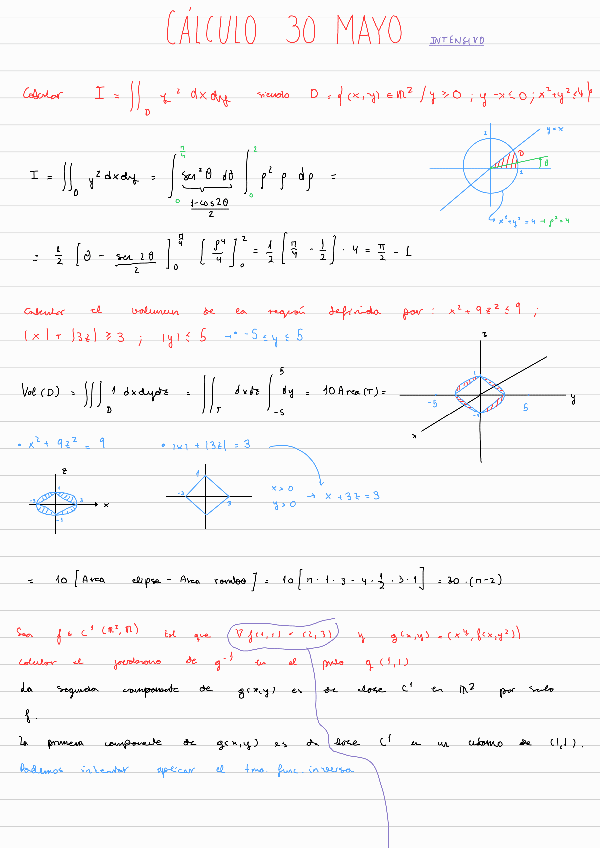 CÁLCULO 30 MAYO INTENSIVO
Calcular I = ∬_D y² dxdy siendo D = {(x,y) ∈ ℝ² / y ≥ 0 ; y - x ≤ 0 ; x² + y² ≤ 4}
2 y = x
D
θ
2
x² + y² = 4 → ρ² = 4
I = ∬_D y² dxdy = ∫_0^{π/4} sen² θ dθ ∫_0^2 ρ² ρ dρ =
(1 - cos 2θ)/2
= 1/2 [θ - sen 2θ/2]_0^{π/4} [ρ⁴/4]_0^2 = 1/2 [π/4 - 1/2] · 4 = π/2 - 1
Calcular el volumen de la región definida por: x² + 9z² ≤ 9 ;
|x| + |3z| ≥ 3 ; |y| ≤ 5 → -5 ≤ y ≤ 5
z
Vol(D) = ∭_D 1 dxdydz = ∬_T dxdz ∫_{-5}^5 dy = 10 Area(T) =
1
-5 5 y
-1
x
• x² + 9z² = 9 • |x| + |3z| = 3
z
1
-3 3 x
-1
1
-3 3
x > 0
y > 0 → x + 3z = 3
= 10 [Area elipse - Area rombo] = 10 [π · 1 · 3 - 4 · 1/2 · 3 · 1] = 30 · (π - 2)
Sea f ∈ C¹(ℝ², ℝ) tal que ∇f(1,1) = (2,3) y g(x,y) = (x⁴, f(x,y²))
calcular el jacobiano de g⁻¹ en el punto g(1,1)
La segunda componente de g(x,y) es de clase C¹ en ℝ² por serlo
f.
La primera componente de g(x,y) es de clase C¹ en un entorno de (1,1).
Podemos intentar aplicar el tma. func. inversa